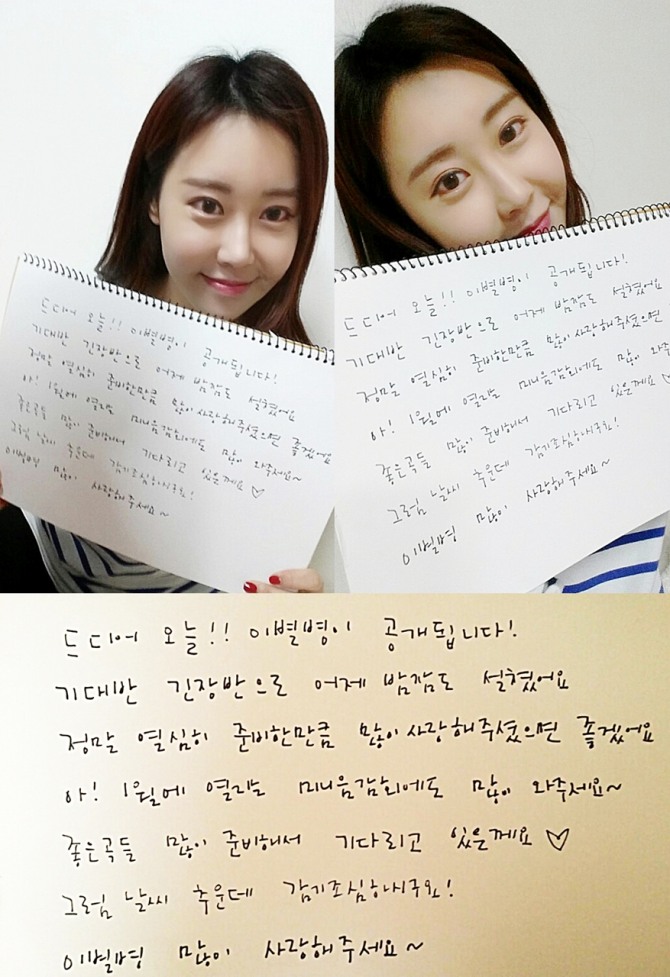 드디어 오늘!! 이별병이 공개됩니다!
기대반 긴장반으로 어제 밤잠도 설쳤어요
정말 열심히 준비한만큼 많이 사랑해주셨으면 좋겠어요
아! 1월에 열리는 미니음감회에도 많이 와주세요~
좋은곡들 많이 준비해서 기다리고 있을께요 ♡
그럼 날씨 추운데 감기조심하시구요!
이별병 많이 사랑해주세요~
드디어 오늘!! 이별병이 공개됩니다!
기대반 긴장반으로 어제 밤잠도 설쳤어요
정말 열심히 준비한만큼 많이 사랑해주셨으면
아! 1월에 열리는 미니음감회에도 많이 와주
좋은곡들 많이 준비해서 기다리고 있을께요 ♡
그럼 날씨 추운데 감기조심하시구요!
이별병 많이 사랑해주세요~
드디어 오늘!! 이별병이 공개됩니다!
기대반 긴장반으로 어제 밤잠도 설쳤어요
정말 열심히 준비한만큼 많이 사랑해주셨으면 좋겠어요
아! 1월에 열리는 미니음감회에도 많이 와주세요~
좋은곡들 많이 준비해서 기다리고 있을께요 ♡
그럼 날씨 추운데 감기조심하시구요!
이별병 많이 사랑해주세요~